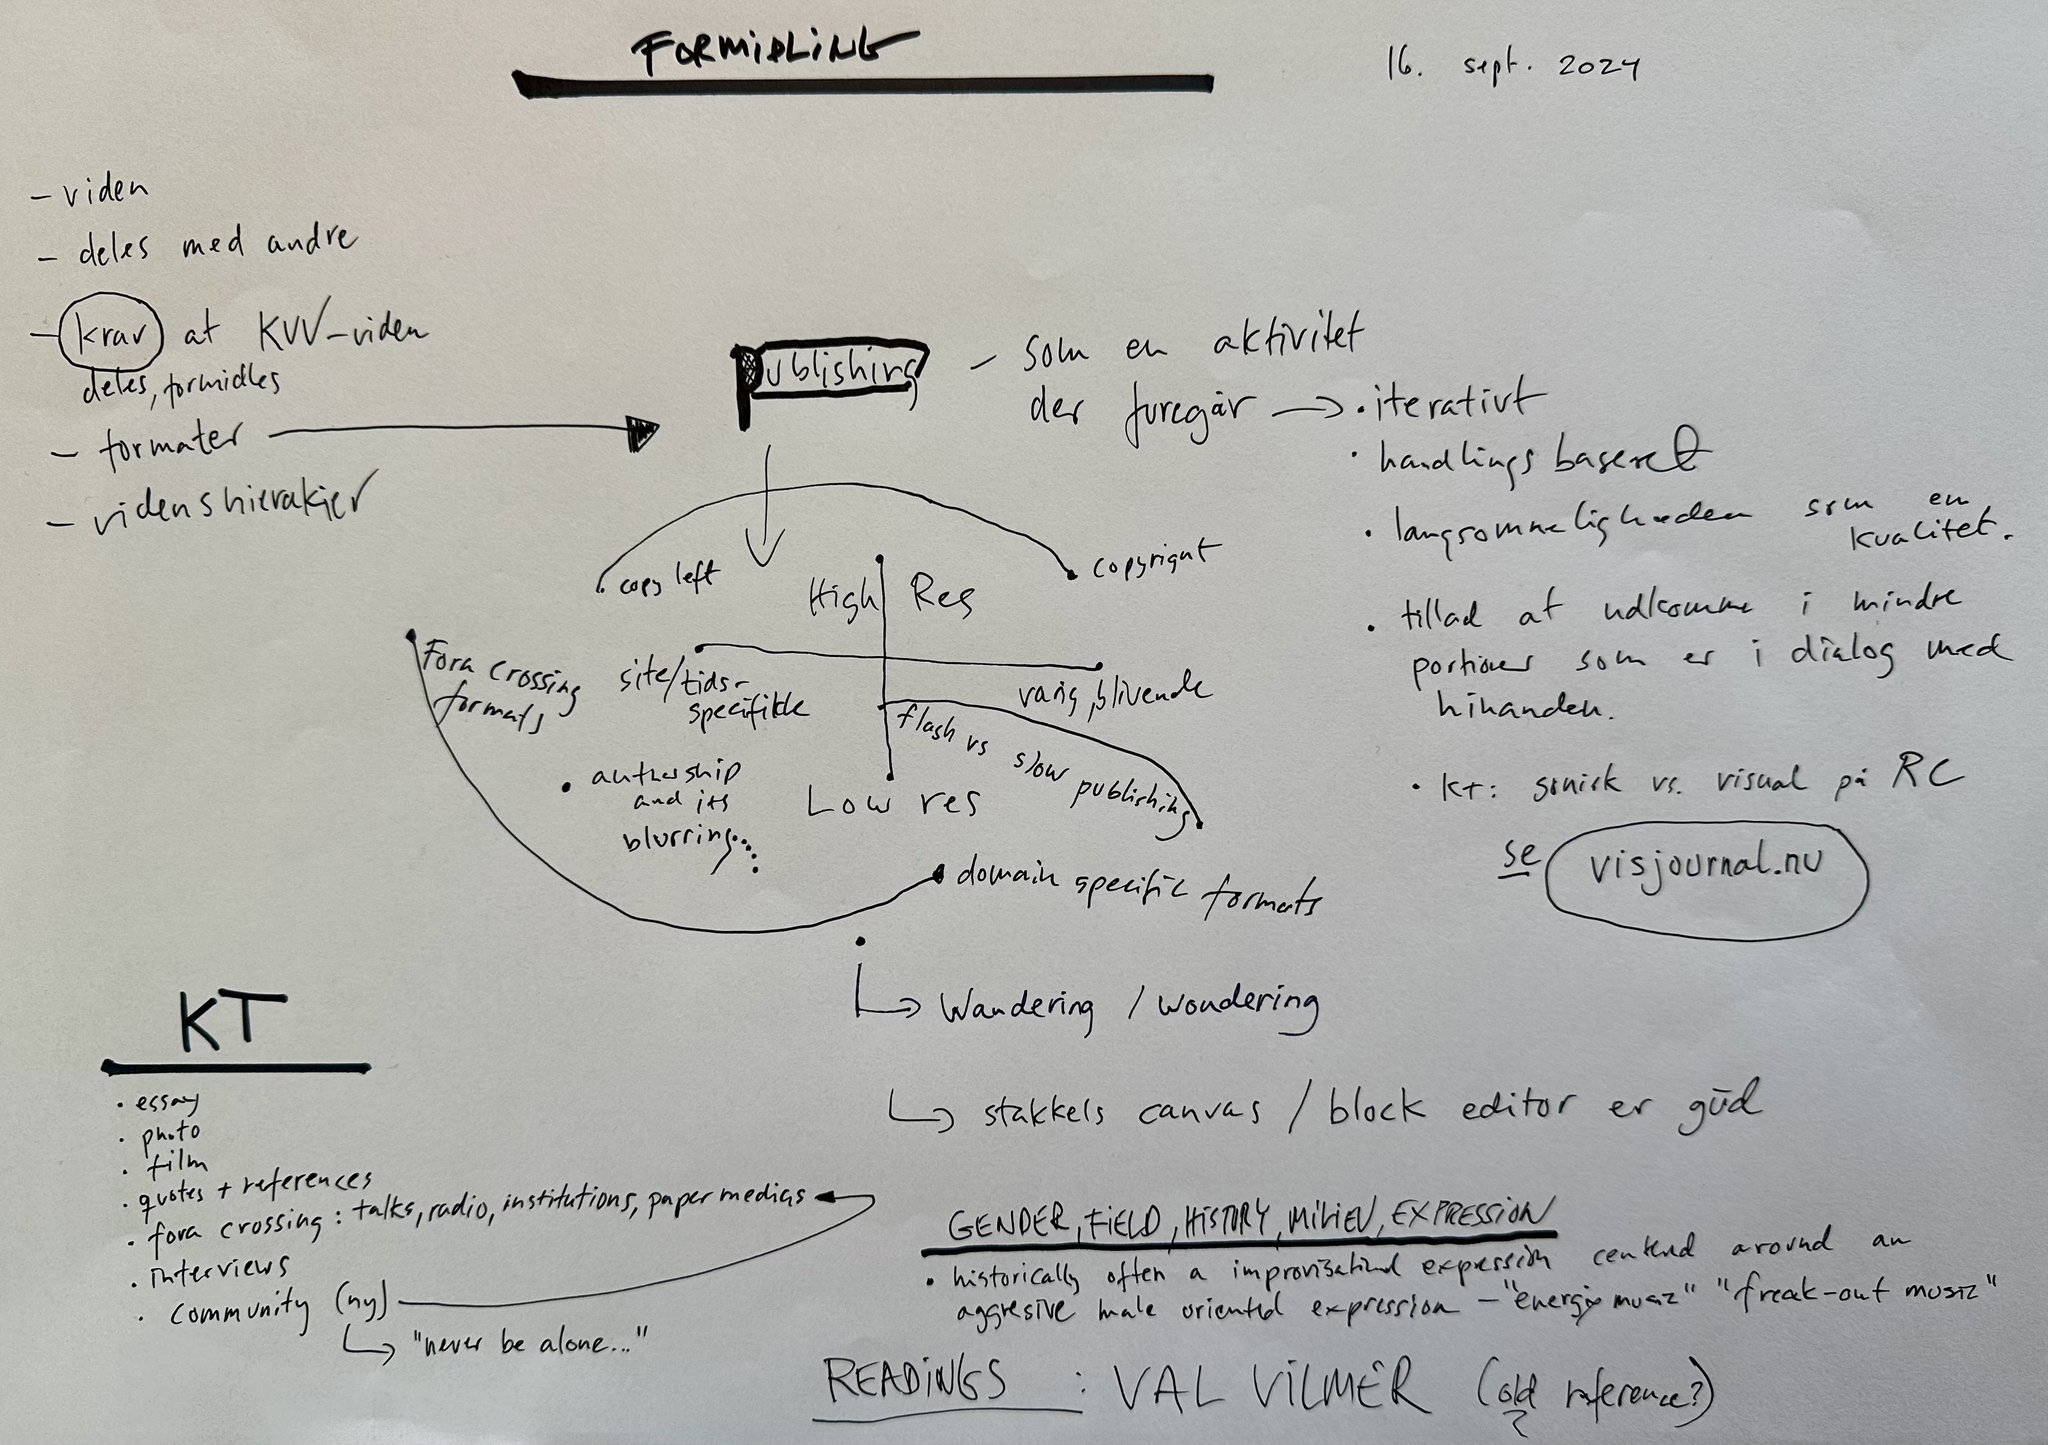 FORMIDLING
16. sept. 2024
- viden
- deles med andre
- krav at KUV-viden
deles, formidles
- formater
- videnshierakier
publishing - som en aktivitet
der foregår → • iterativt
• handlingsbaseret
• langsommeligheden som en
kvalitet.
• tillad at udkomme i mindre
portioner som er i dialog med
hinanden.
• KT: sonisk vs. visual på RC
se visjournal.nu
copy left
copyright
High Res
Fora crossing
formats
site/tids-
specifikke
varig, blivende
flash vs slow publishing
• authorship
and its
blurring.....
Low res
domain specific formats
↳ Wandering / wondering
↳ stakkels canvas / block editor er gud
KT
• essay
• photo
• film
• quotes + references
• fora crossing: talks, radio, institutions, paper medias
• interviews
• community (ny)
↳ "never be alone..."
GENDER, FIELD, HISTORY, MILIEU, EXPRESSION
• historically often a improvisational expression centerd around an
aggresive male oriented expression - "energy music" "freak-out music"
READINGS : VAL VILMER (old reference?)